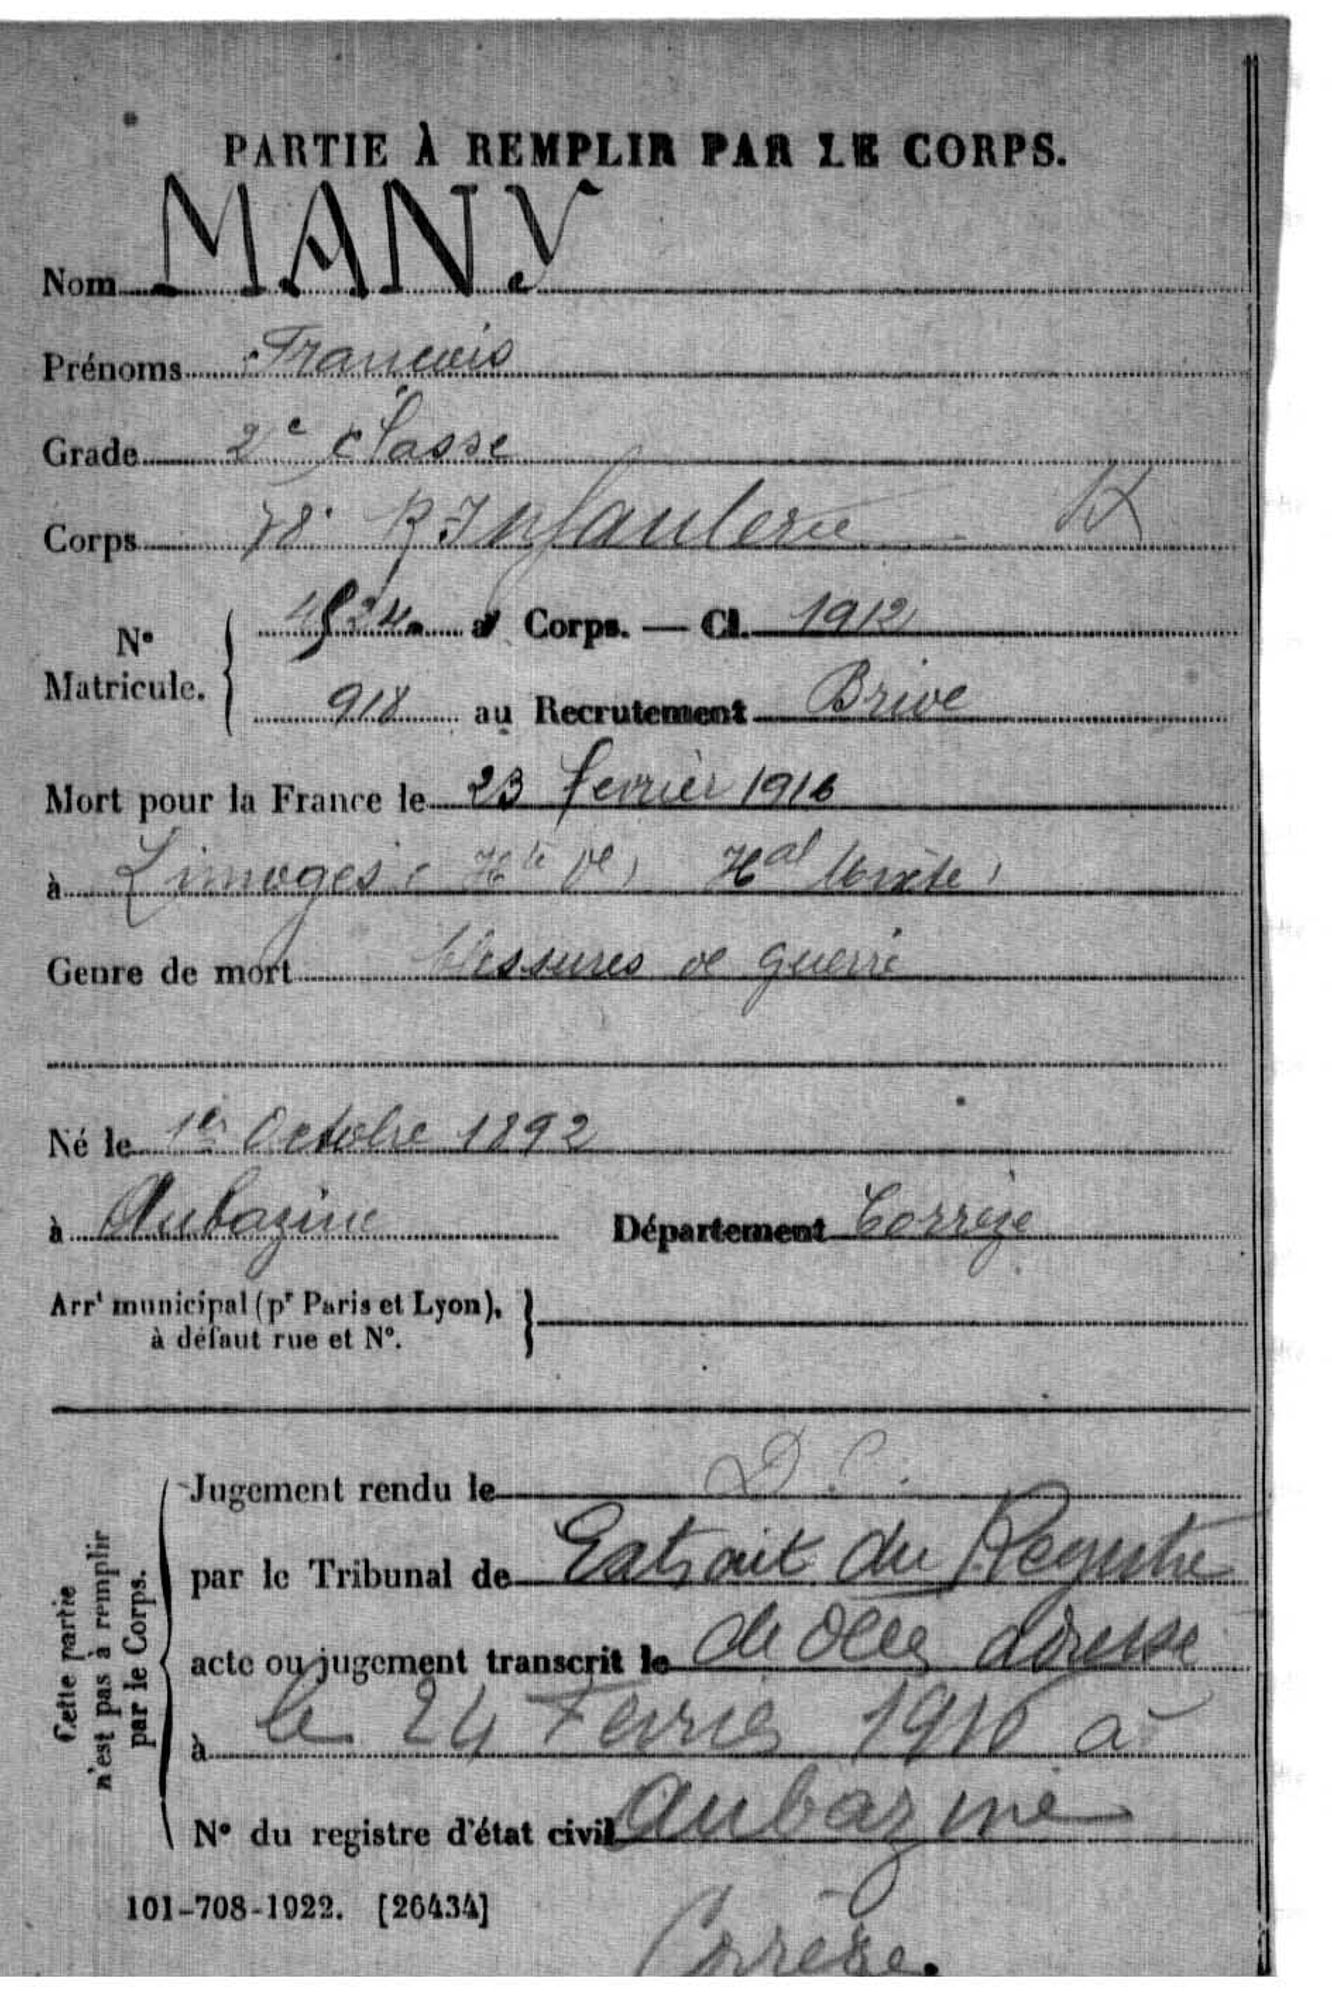 PARTIE À REMPLIR PAR LE CORPS.
Nom MANY
Prénoms François
Grade 2e classe
Corps 78e R Infanterie
N° Matricule. au Corps. — Cl. 1912
918 au Recrutement Brive
Mort pour la France le 23 fevrier 1916
à Limoges (Hte Ve) Hal Mixte
Genre de mort blessures de guerre
Né le 1er Octobre 1892
à Aubazine Département Corrèze
Arrt municipal (pr Paris et Lyon),
à défaut rue et N°.
Cette partie
n'est pas à remplir
par le Corps.
Jugement rendu le
par le Tribunal de Extrait du Registre
acte ou jugement transcrit le de adresse
à le 24 Fevrier 1916 à
N° du registre d'état civil Aubazine
101-708-1922. [26434]
Corrèze.